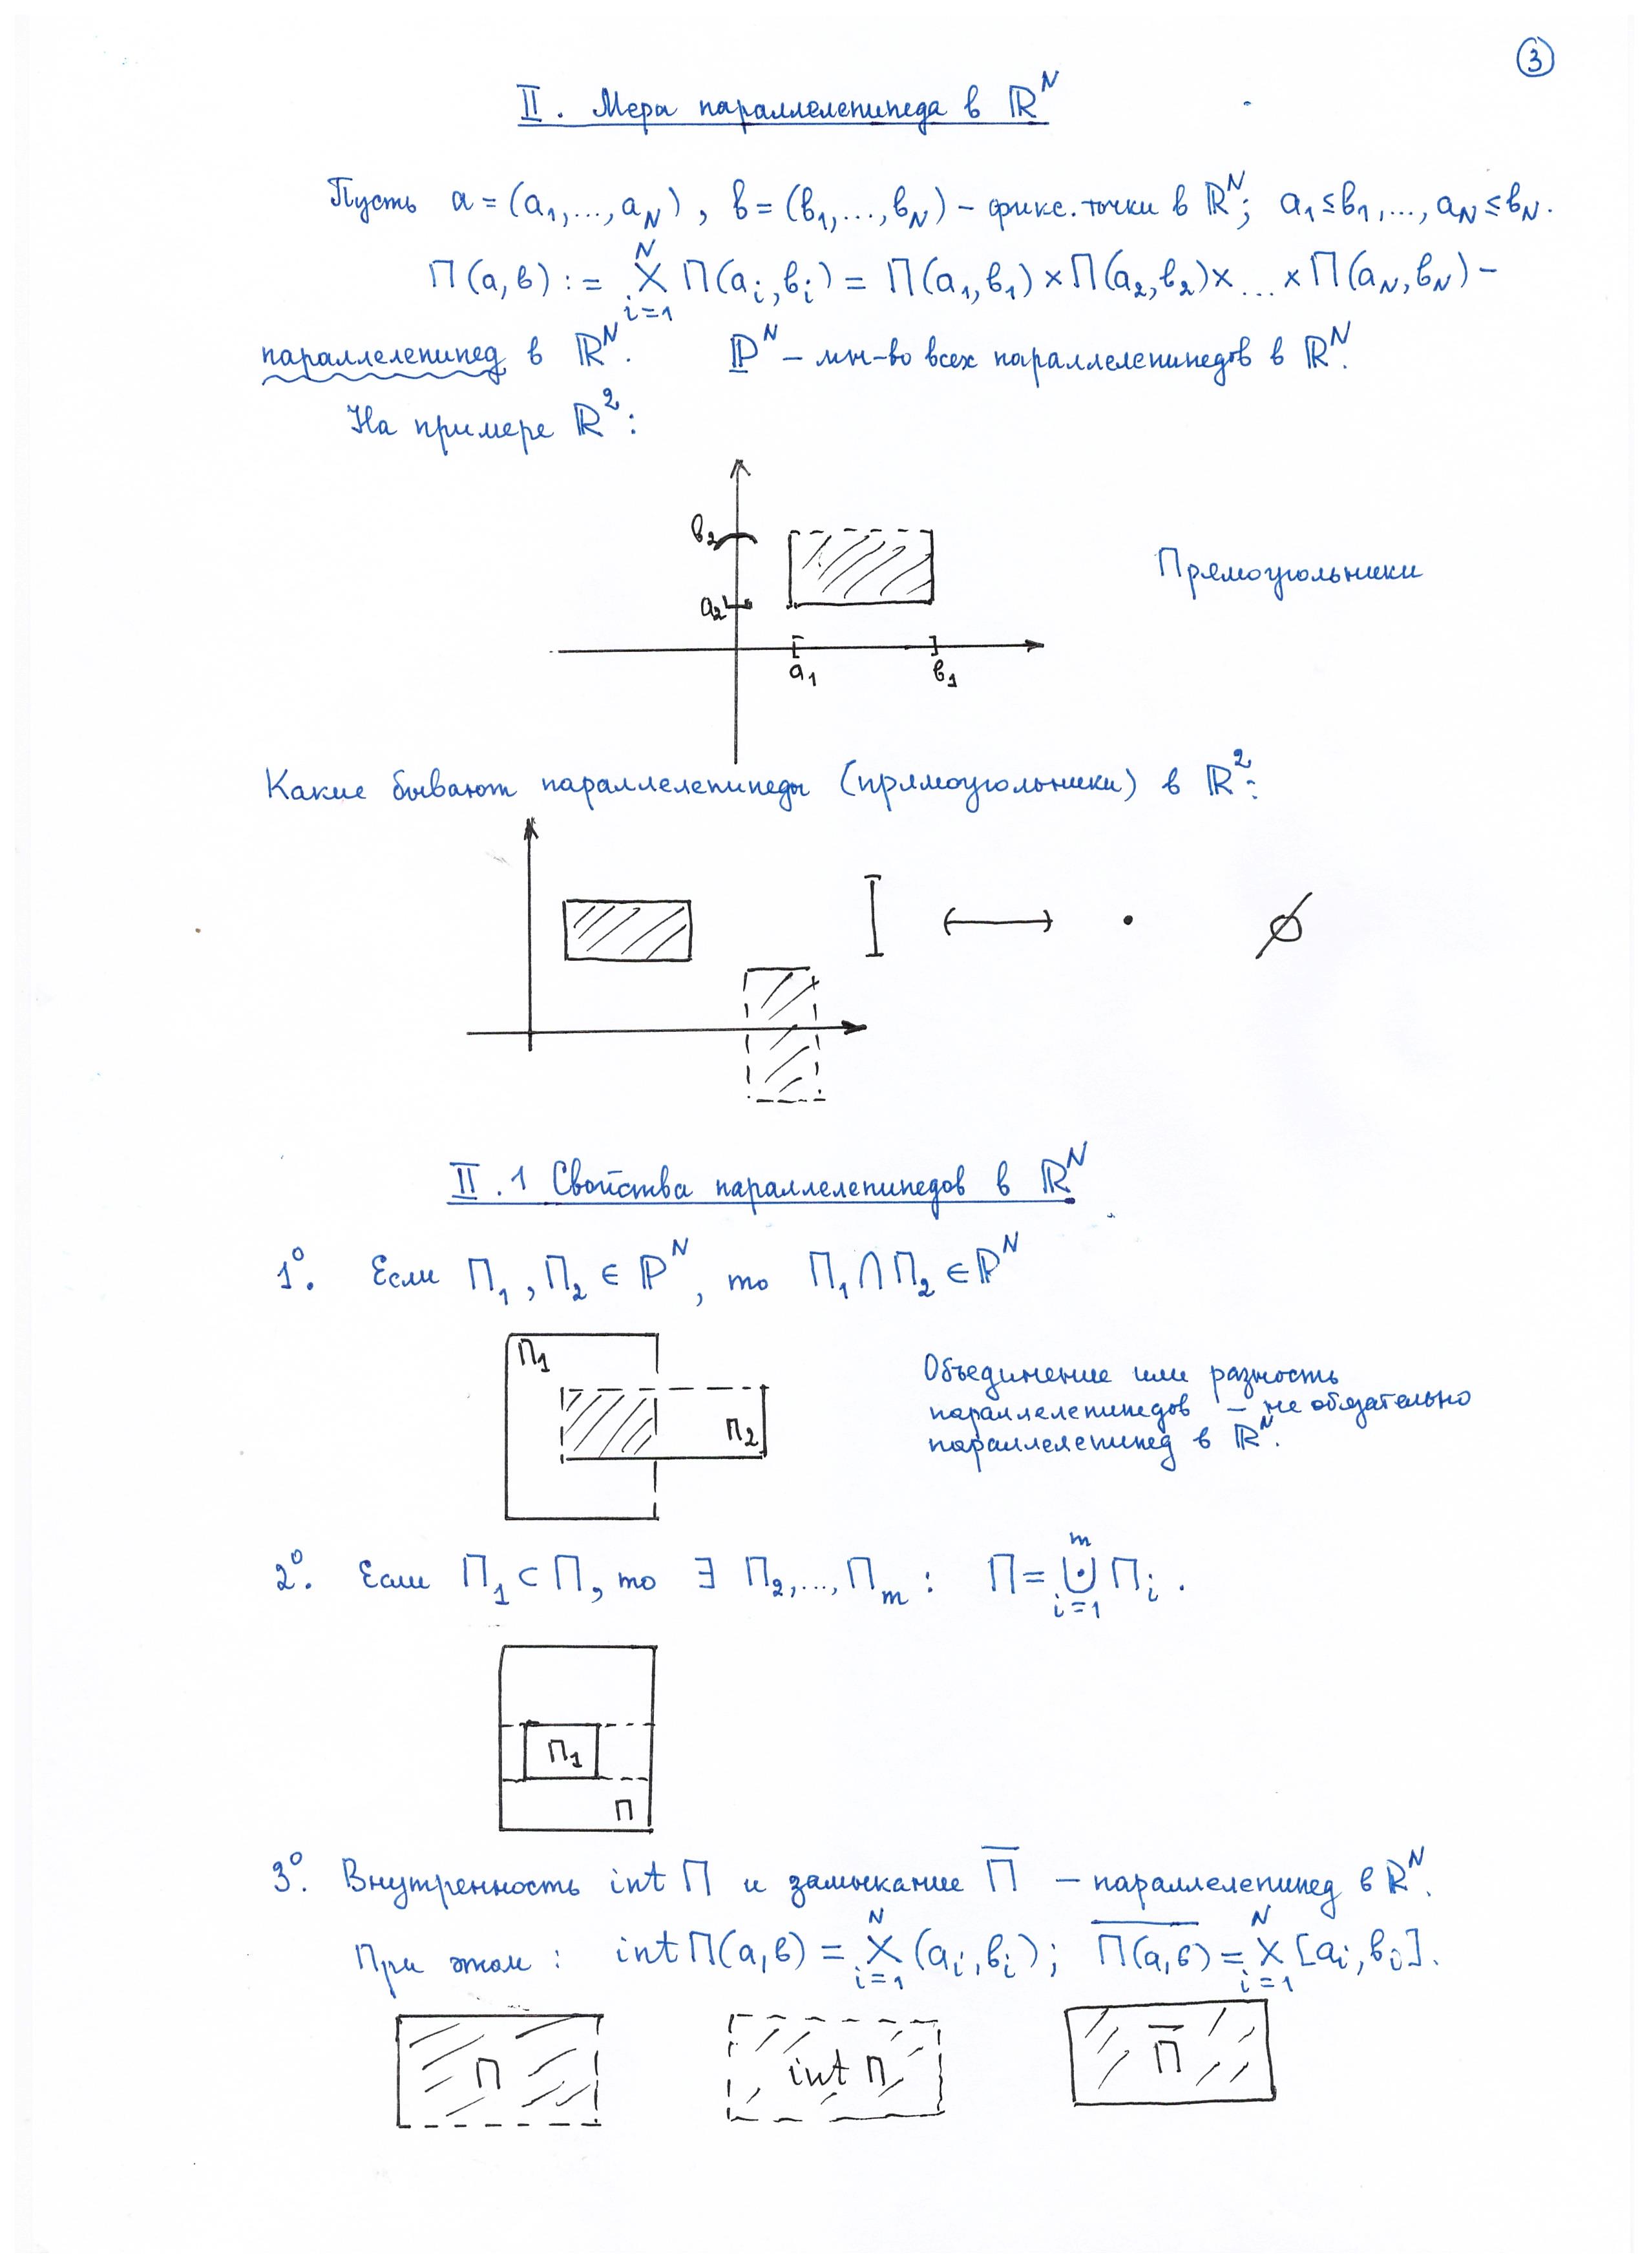 3
II. Мера параллелепипеда в ℝ^N
Пусть a = (a₁,...,a_N), в = (в₁,...,в_N) – фикс. точки в ℝ^N; a₁≤в₁,..., a_N≤в_N.
П(a,в) := X_{i=1}^N П(a_i,в_i) = П(a₁,в₁)×П(a₂,в₂)×...×П(a_N,в_N) –
параллелепипед в ℝ^N. ℙ^N – мн-во всех параллелепипедов в ℝ^N.
На примере ℝ²:
в₂
Прямоугольники
a₂
a₁ в₁
Какие бывают параллелепипеды (прямоугольники) в ℝ²:
∅
II.1 Свойства параллелепипедов в ℝ^N
1°. Если П₁, П₂ ∈ ℙ^N, то П₁∩П₂ ∈ ℙ^N
П₁
П₂
Объединение или разность
параллелепипедов – не обязательно
параллелепипед в ℝ^N.
2°. Если П₁ ⊂ П, то ∃ П₂,...,П_m : П = ⨃_{i=1}^m П_i.
П₁
П
3°. Внутренность int П и замыкание П̅ – параллелепипед в ℝ^N.
При этом: int П(a,в) = X_{i=1}^N (a_i,в_i); \overline{П(a,в)} = X_{i=1}^N [a_i,в_i].
П int П П̅